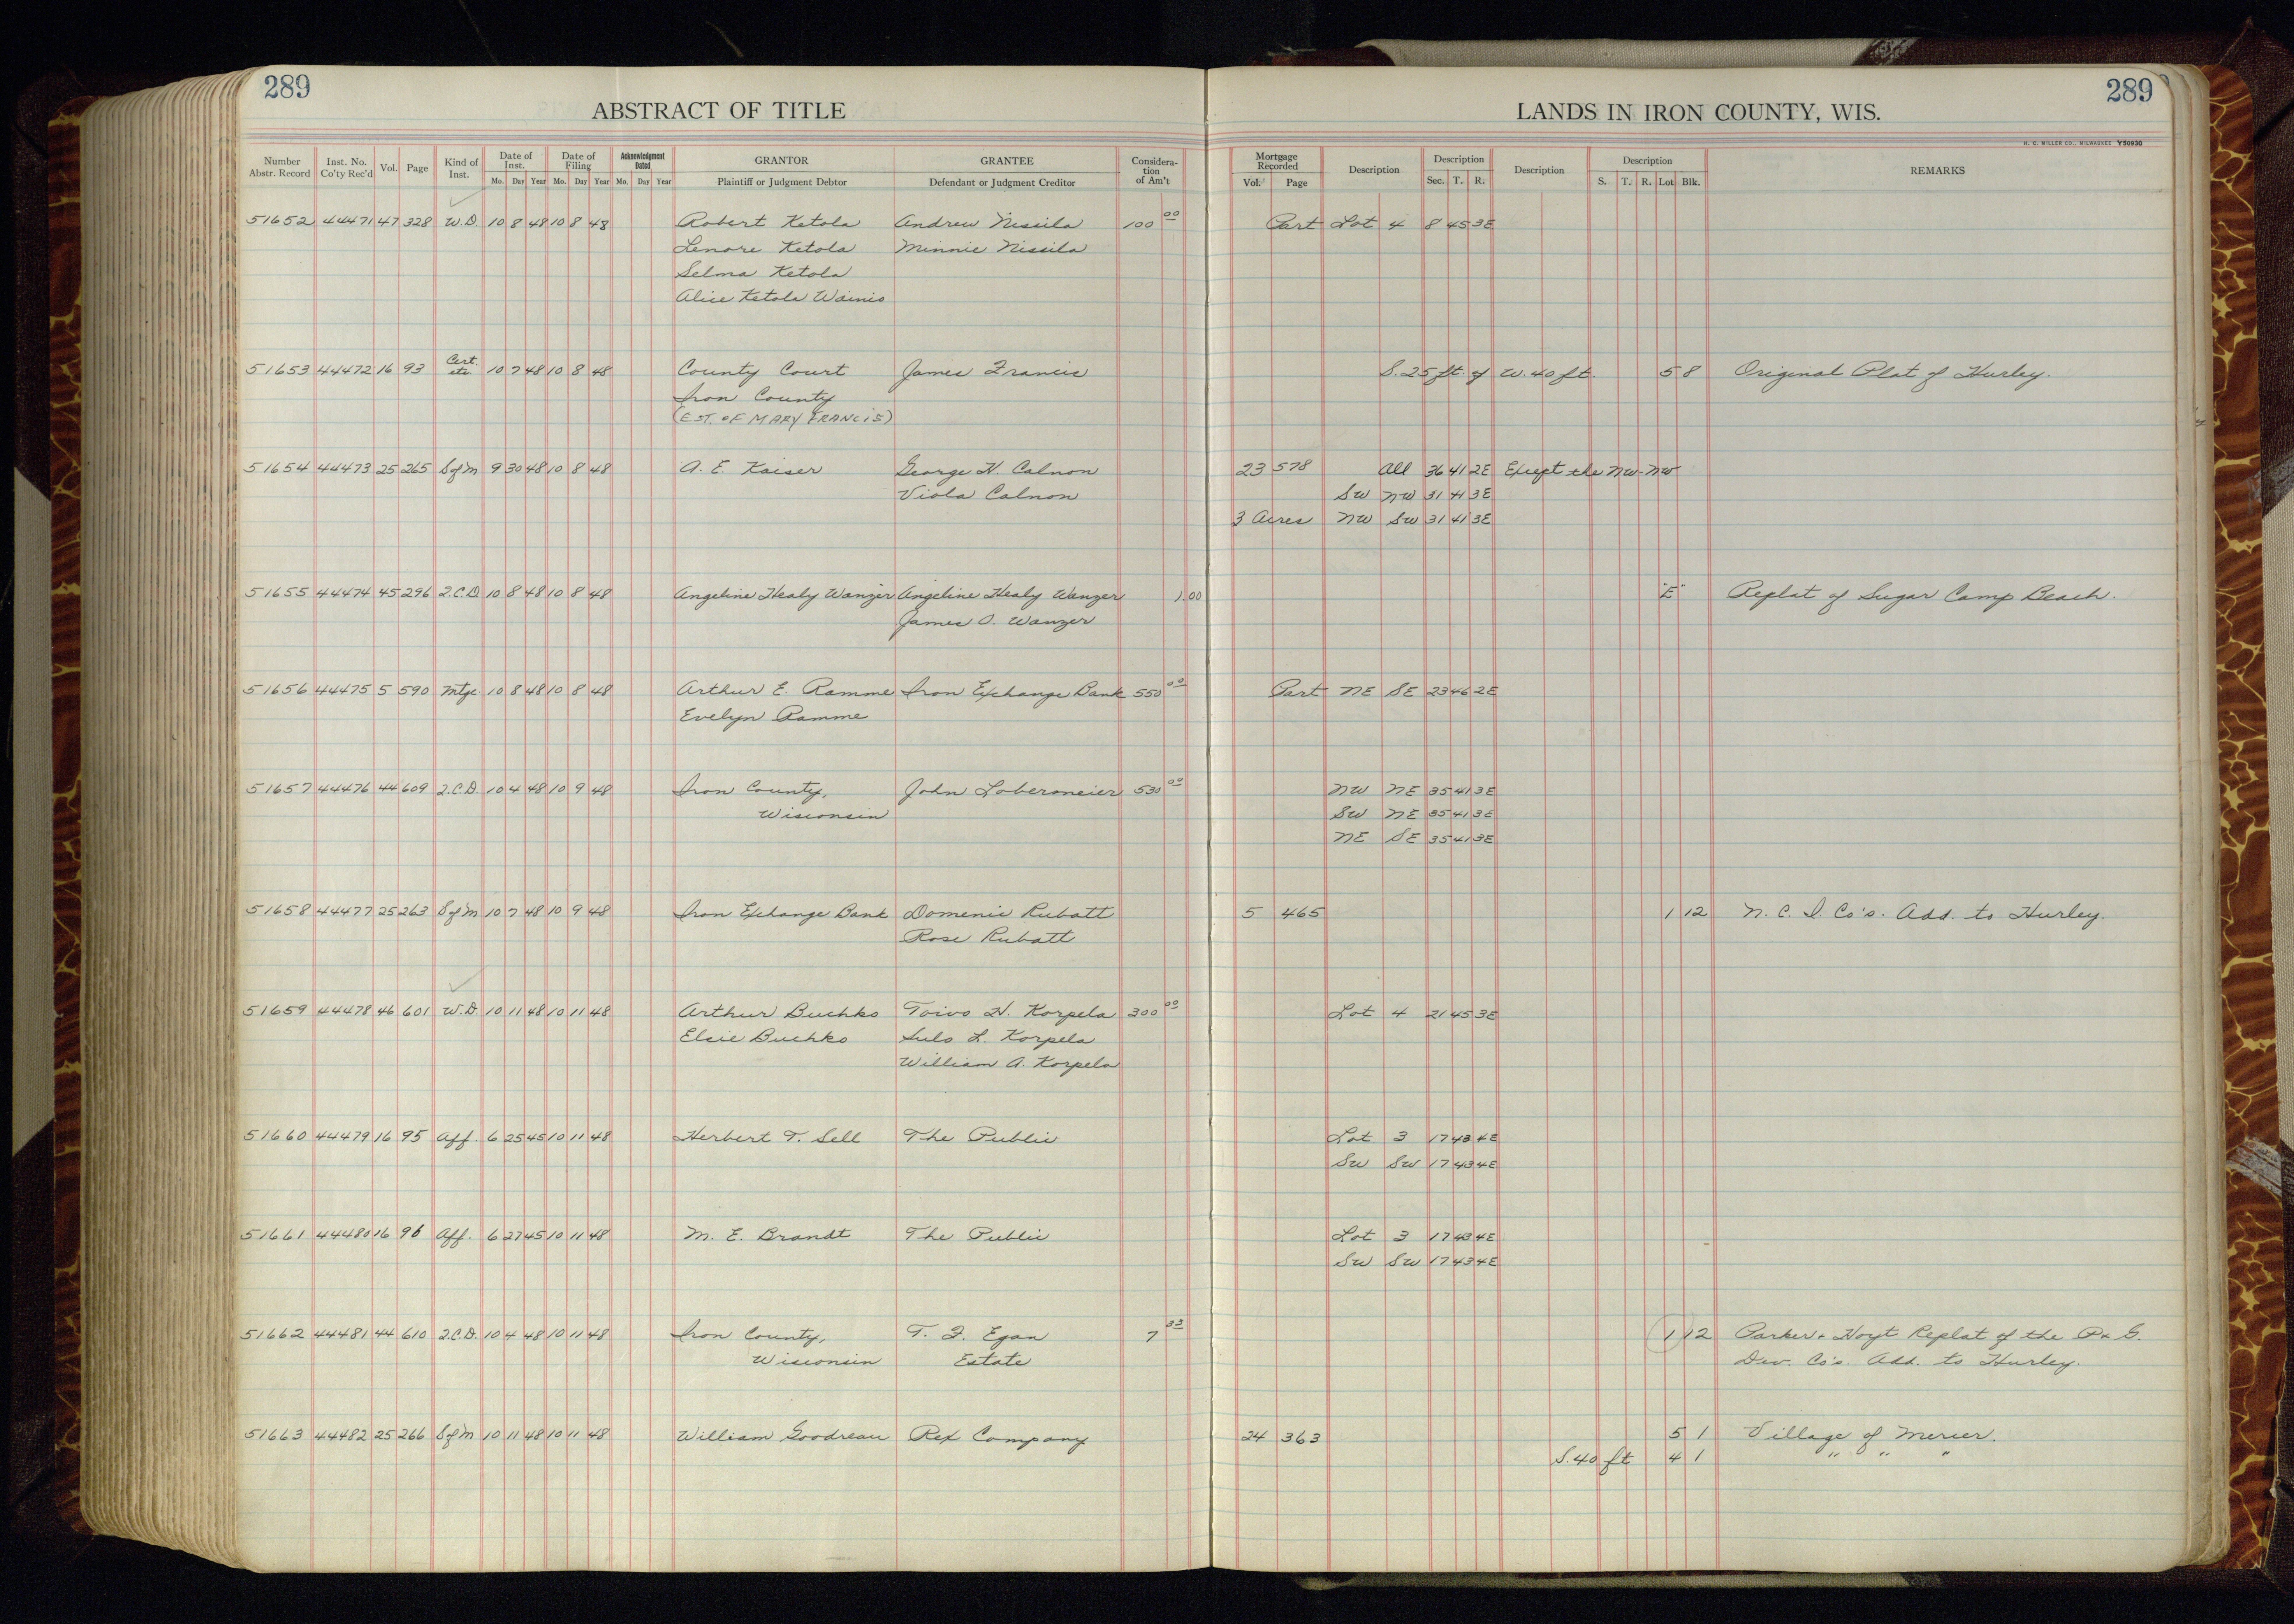 289
ABSTRACT OF TITLE
LANDS IN IRON COUNTY, WIS.
289
H. C. MILLER CO., MILWAUKEE Y50930
Number Abstr. Record | Inst. No. Co'ty Rec'd | Vol. | Page | Kind of Inst. | Date of Inst. Mo. Day Year | Date of Filing Mo. Day Year | Acknowledgment Dated Mo. Day Year | GRANTOR Plaintiff or Judgment Debtor | GRANTEE Defendant or Judgment Creditor | Consideration of Am't | Mortgage Recorded Vol. Page | Description | Description Sec. T. R. | Description | Description S. T. R. Lot Blk. | REMARKS
51652 44471 47 328 W.D. 10 8 48 10 8 48 Robert Ketola Andrew Nissila 100 00 Part Lot 4 8 45 3E
Lenore Ketola Minnie Nissila
Selma Ketola
Alice Ketola Wainio
51653 44472 16 93 Cert. etc. 10 7 48 10 8 48 County Court James Francis S. 25 ft. of W. 40 ft. 5 8 Original Plat of Hurley.
Iron County
(EST. OF MARY FRANCIS)
51654 44473 25 265 S of M 9 30 48 10 8 48 A. E. Kaiser George H. Calnon 23 578 All 36 41 2E Except the NW-NW
Viola Calnon SW NW 31 41 3E
3 Acres NW SW 31 41 3E
51655 44474 45 296 Q.C.D. 10 8 48 10 8 48 Angeline Healy Wanzer Angeline Healy Wanzer 1.00 "E" Replat of Sugar Camp Beach.
James O. Wanzer
51656 44475 5 590 Mtge 10 8 48 10 8 48 Arthur E. Ramme Iron Exchange Bank 550 00 Part NE SE 23 46 2E
Evelyn Ramme
51657 44476 44 609 Q.C.D. 10 4 48 10 9 48 Iron County, John Lobermeier 530 00 NW NE 35 41 3E
Wisconsin SW NE 35 41 3E
NE SE 35 41 3E
51658 44477 25 263 S of M 10 7 48 10 9 48 Iron Exchange Bank Domenic Rubatt 5 465 1 12 N. C. I. Co's. Add. to Hurley.
Rose Rubatt
51659 44478 46 601 W.D. 10 11 48 10 11 48 Arthur Buchko Toivo H. Korpela 300 00 Lot 4 21 45 3E
Elsie Buchko Sulo L. Korpela
William A. Korpela
51660 44479 16 95 Aff. 6 25 45 10 11 48 Herbert T. Sell The Public Lot 3 17 43 4E
SW SW 17 43 4E
51661 44480 16 96 Aff. 6 27 45 10 11 48 M. E. Brandt The Public Lot 3 17 43 4E
SW SW 17 43 4E
51662 44481 44 610 Q.C.D. 10 4 48 10 11 48 Iron County, T. F. Egan 7 33 1 12 Parker & Hoyt Replat of the P & G.
Wisconsin Estate Dev. Co's. Add. to Hurley.
51663 44482 25 266 S of M 10 11 48 10 11 48 William Goodreau Rex Company 24 363 5 1 Village of Mercer.
S. 40 ft 4 1 " " "